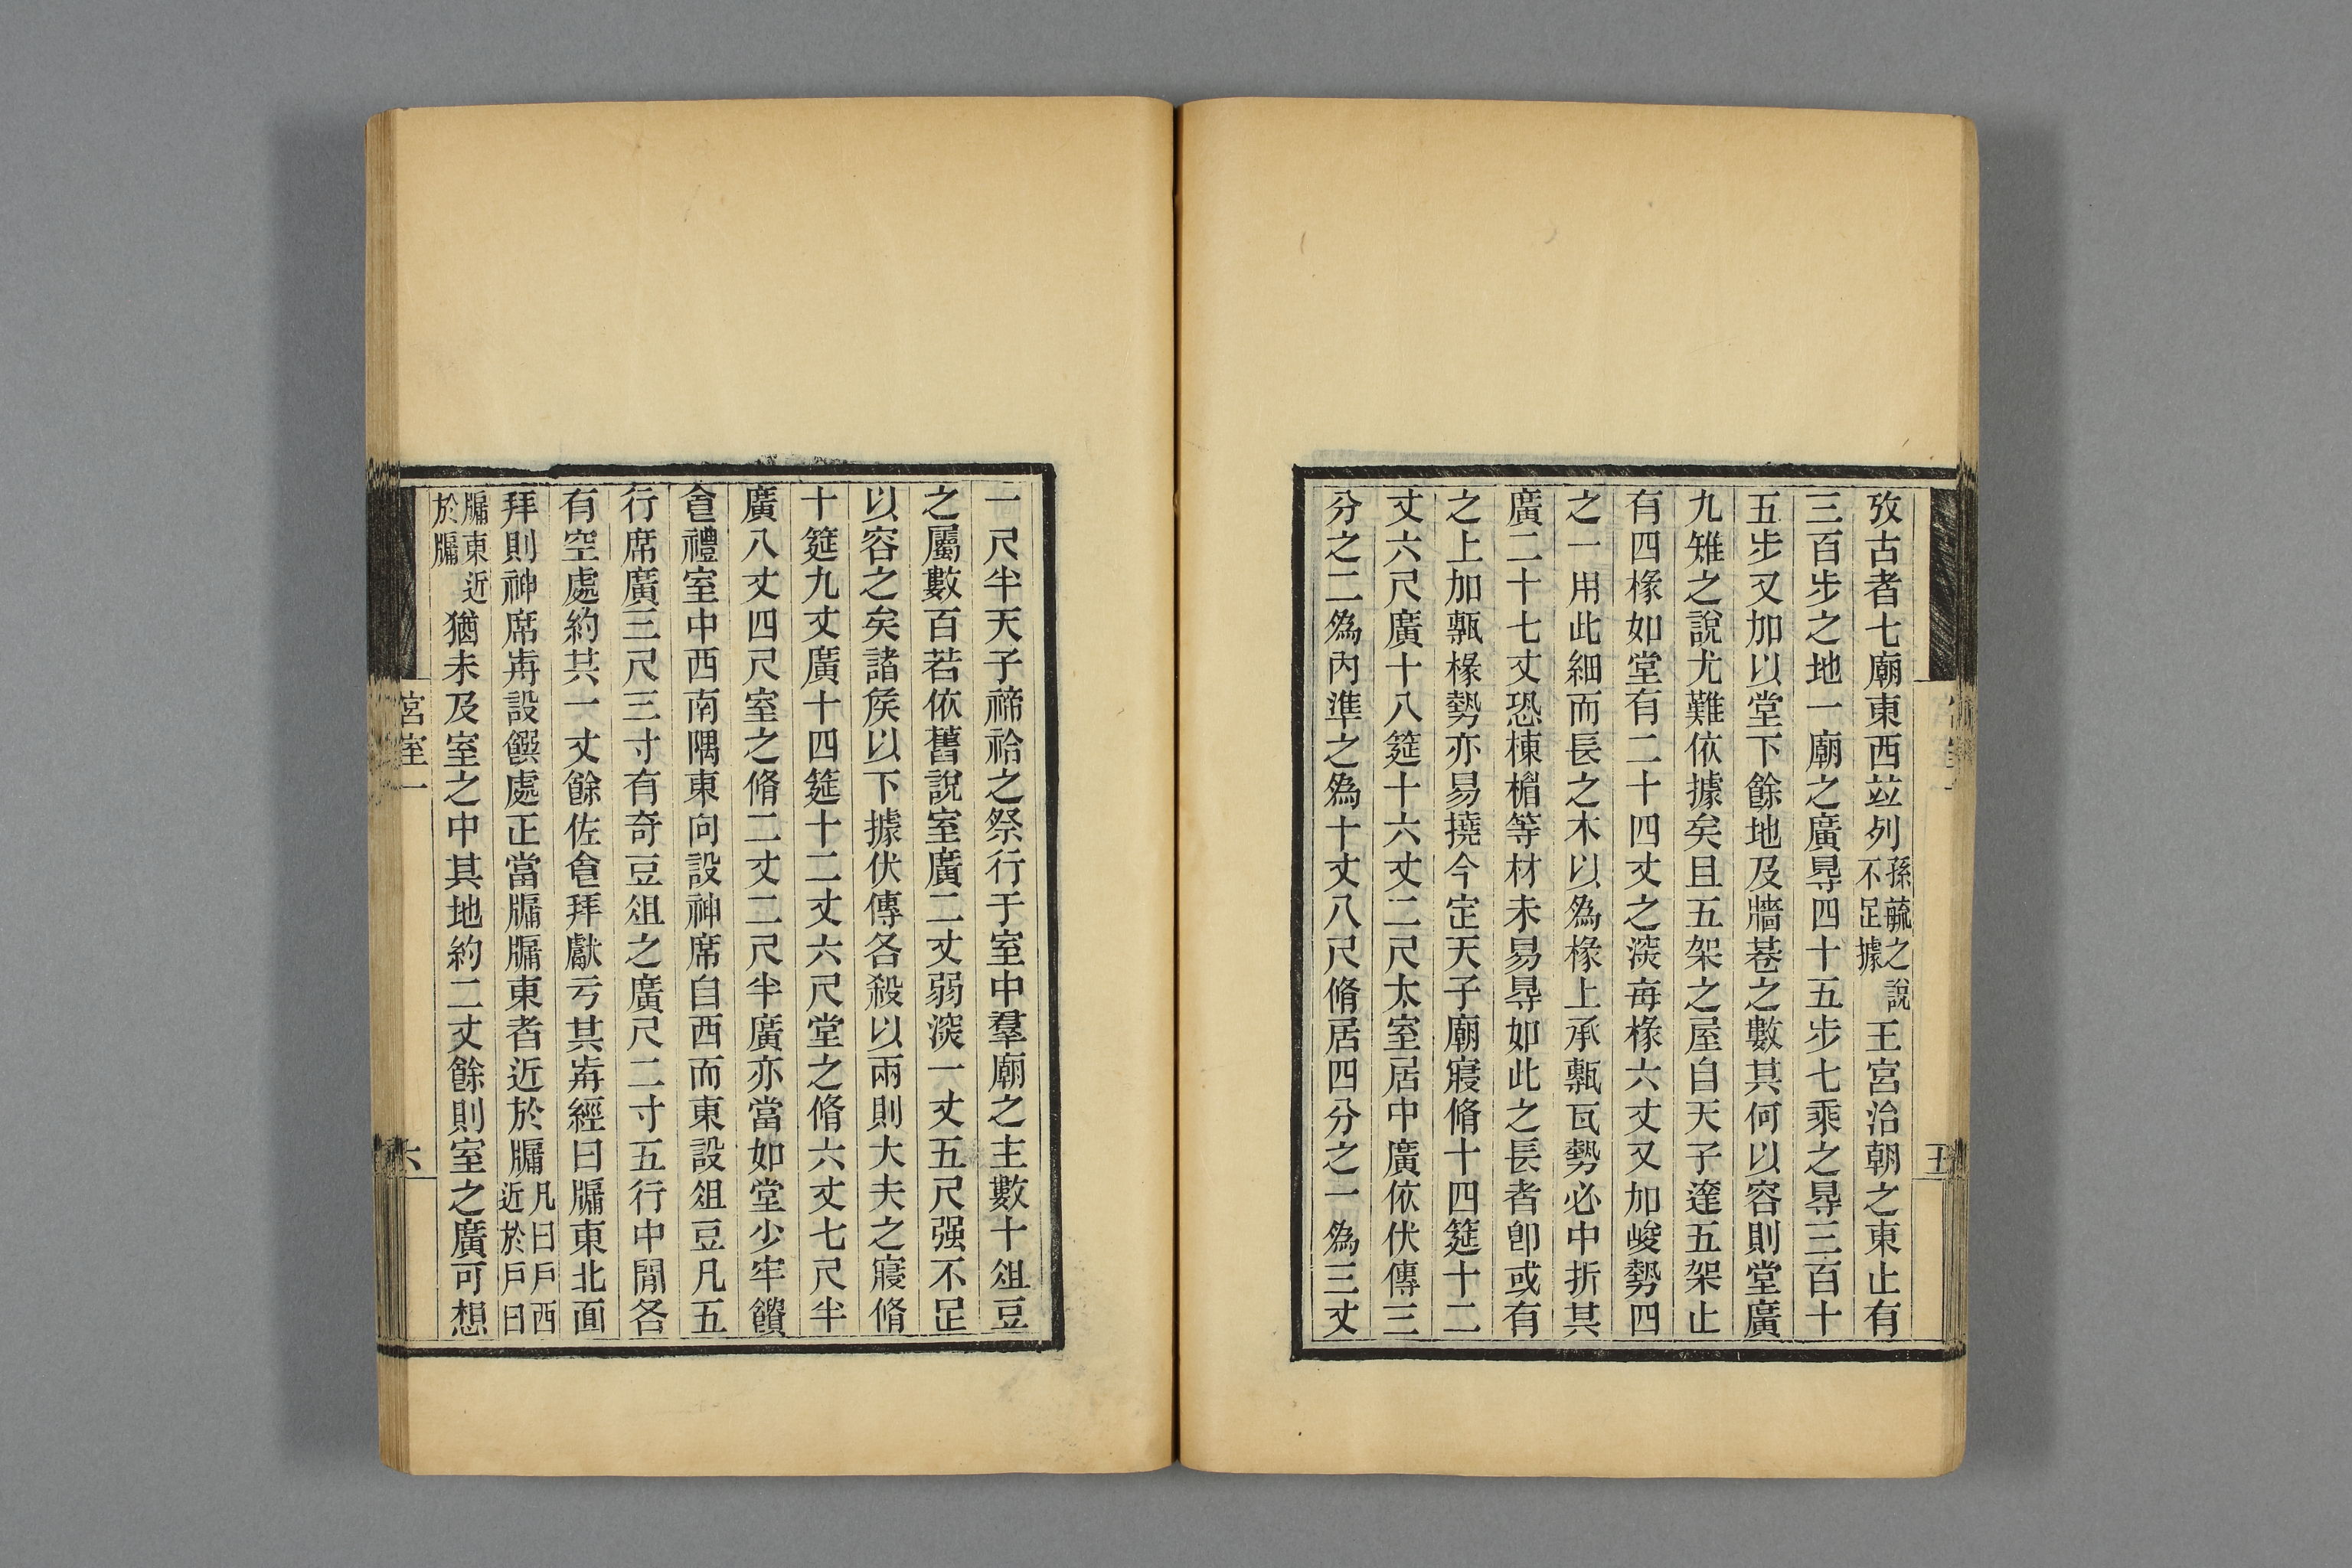 攷古者七廟東西竝列孫毓之說不足據王宮治朝之東止有
三百步之地一廟之廣㝵四十五步七乘之㝵三百十
五步又加以堂下餘地及牆巷之數其何以容則堂廣
九雉之說尤難依據矣且五架之屋自天子達五架止
有四椽如堂有二十四丈之㴱每椽六丈又加峻勢四
之一用此細而長之木以為椽上承甎瓦勢必中折其
廣二十七丈恐棟楣等材未易㝵如此之長者卽或有
之上加甎椽勢亦易撓今定天子廟寢脩十四筵十二
丈六尺廣十八筵十六丈二尺太室居中廣依伏傳三
分之二為內準之為十丈八尺脩居四分之一為三丈
宮室一
五
一尺半天子禘祫之祭行于室中羣廟之主數十俎豆
之屬數百若依舊說室廣二丈弱㴱一丈五尺强不足
以容之矣諸矦以下據伏傳各殺以兩則大夫之寢脩
十筵九丈廣十四筵十二丈六尺堂之脩六丈七尺半
廣八丈四尺室之脩二丈二尺半廣亦當如堂少牢饋
食禮室中西南隅東向設神席自西而東設俎豆凡五
行席廣三尺三寸有奇豆俎之廣尺二寸五行中閒各
有空處約共一丈餘佐食拜獻亏其歬經曰牖東北面
拜則神席歬設饌處正當牖牖東者近於牖凡曰戶西近於戶曰
牖東近於牖猶未及室之中其地約二丈餘則室之廣可想
宮室一
六